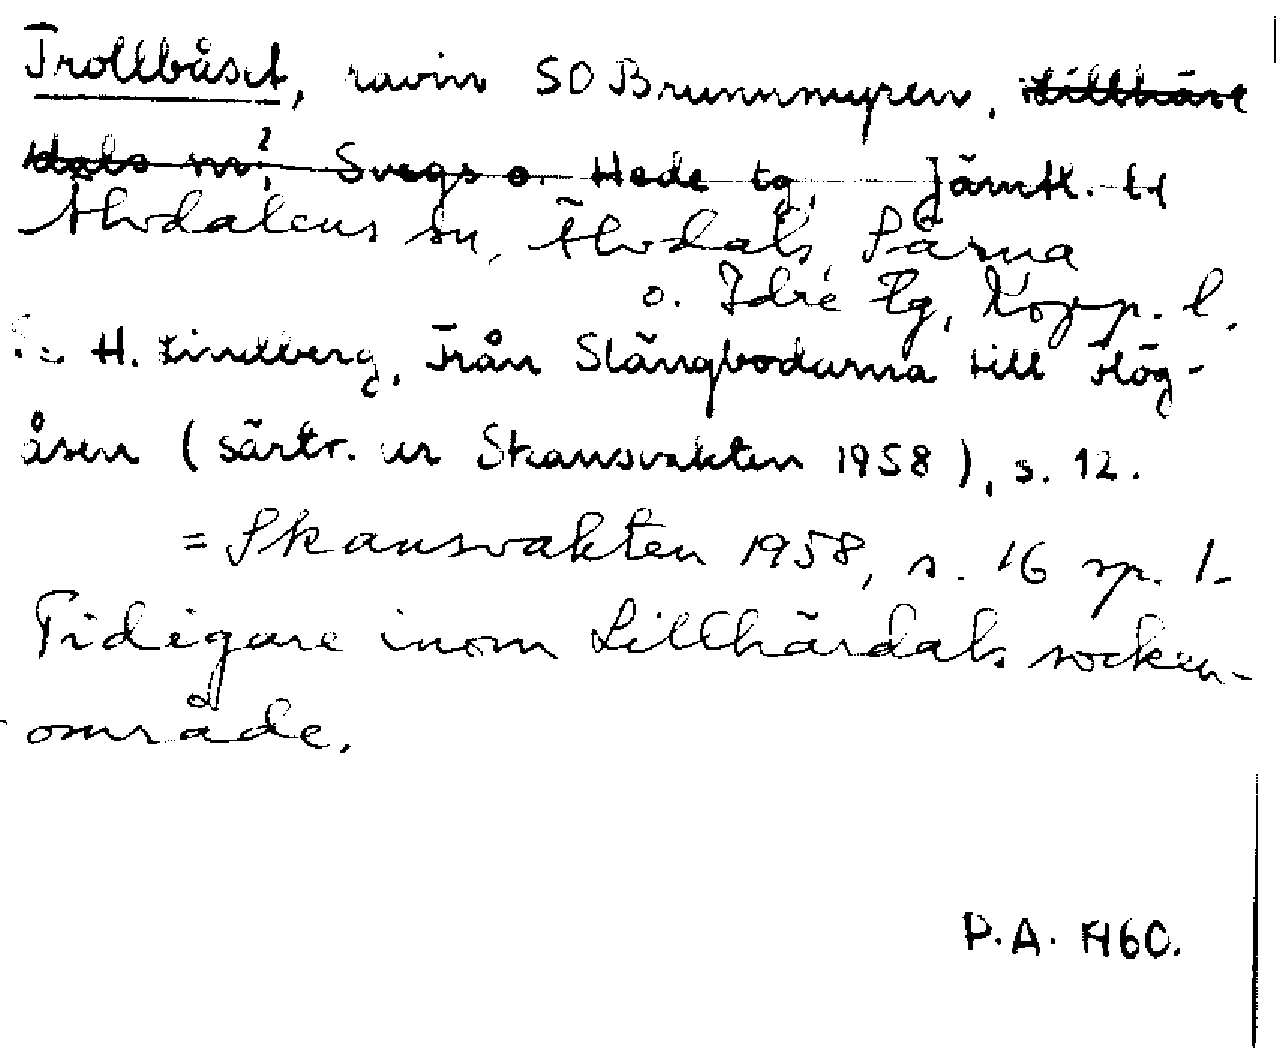 Trollbåset, ravin SO Brunnmyren, Lillhärdals sn?, Svegs o. Hede tg, Jämtl. l
Älvdalens sn, Älvdals, Särna
o. Idre tg, Kopp. l.
Se H. Lindberg, Från Slängbodarna till Hög-
åsen (särtr. ur Skansvakten 1958), s. 12.
= Skansvakten 1958, s. 16 sp. 1.
Tidigare inom Lillhärdals socken-
område.
P.A. 1960.